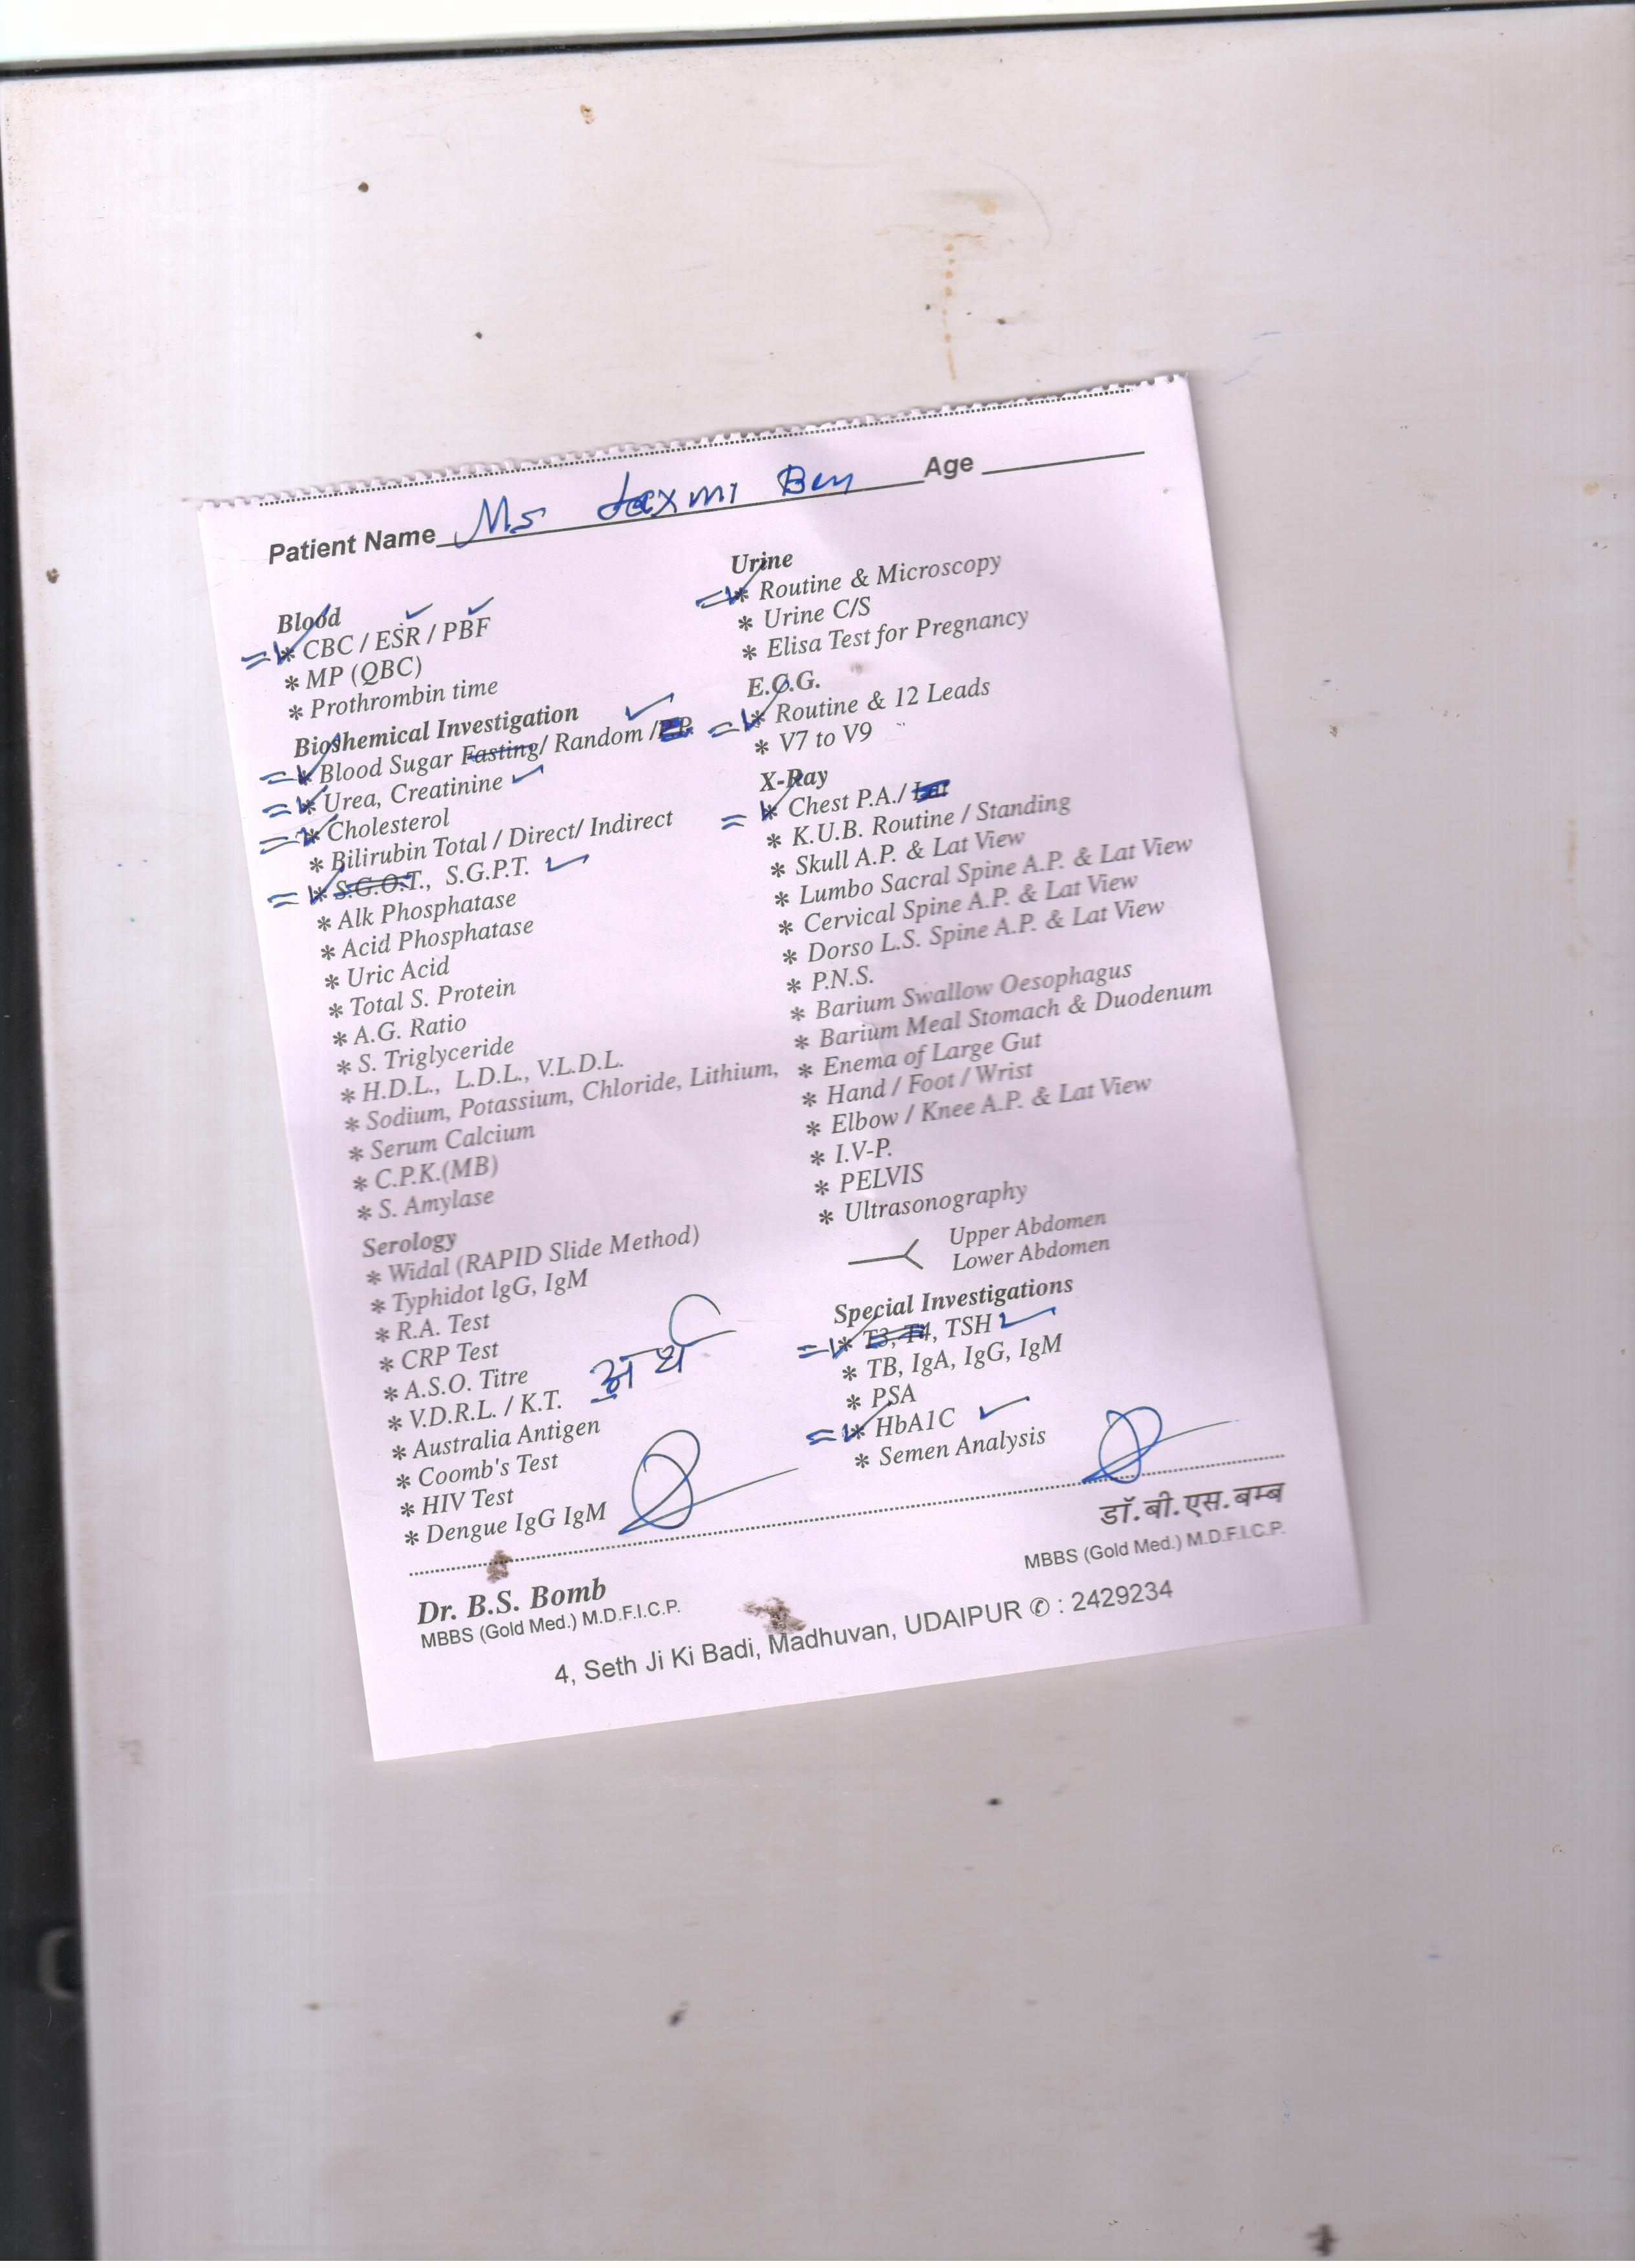 Patient Name Ms Laxmi Ben Age
Blood
* CBC / ESR / PBF
* MP (QBC)
* Prothrombin time
Bioshemical Investigation
* Blood Sugar Fasting/ Random / P.P.
* Urea, Creatinine
* Cholesterol
* Bilirubin Total / Direct/ Indirect
* S.G.O.T., S.G.P.T.
* Alk Phosphatase
* Acid Phosphatase
* Uric Acid
* Total S. Protein
* A.G. Ratio
* S. Triglyceride
* H.D.L., L.D.L., V.L.D.L.
* Sodium, Potassium, Chloride, Lithium,
* Serum Calcium
* C.P.K.(MB)
* S. Amylase
Serology
* Widal (RAPID Slide Method)
* Typhidot lgG, IgM
* R.A. Test
* CRP Test
* A.S.O. Titre
* V.D.R.L. / K.T.
* Australia Antigen
* Coomb's Test
* HIV Test
* Dengue IgG IgM
Urine
* Routine & Microscopy
* Urine C/S
* Elisa Test for Pregnancy
E.C.G.
* Routine & 12 Leads
* V7 to V9
X-Ray
* Chest P.A./ Lat
* K.U.B. Routine / Standing
* Skull A.P. & Lat View
* Lumbo Sacral Spine A.P. & Lat View
* Cervical Spine A.P. & Lat View
* Dorso L.S. Spine A.P. & Lat View
* P.N.S.
* Barium Swallow Oesophagus
* Barium Meal Stomach & Duodenum
* Enema of Large Gut
* Hand / Foot / Wrist
* Elbow / Knee A.P. & Lat View
* I.V-P.
* PELVIS
* Ultrasonography
Upper Abdomen
Lower Abdomen
Special Investigations
* T3, T4, TSH
* TB, IgA, IgG, IgM
* PSA
* HbA1C
* Semen Analysis
Dr. B.S. Bomb
MBBS (Gold Med.) M.D.F.I.C.P.
डॉ. बी. एस. बम्ब
MBBS (Gold Med.) M.D.F.I.C.P.
4, Seth Ji Ki Badi, Madhuvan, UDAIPUR ✆ : 2429234